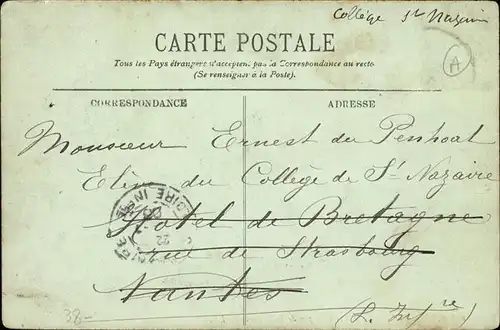 Collège St Nazaire
A
CARTE POSTALE
Tous les Pays étrangers n'acceptent pas la Correspondance au recto
(Se renseigner à la Poste).
CORRESPONDANCE
ADRESSE
Monsieur Ernest du Penhoat
Elève du Collège de St Nazaire
Hotel de Bretagne
rue de Strasbourg
Nantes
(L. Infre)
LOIRE INFRE
38-